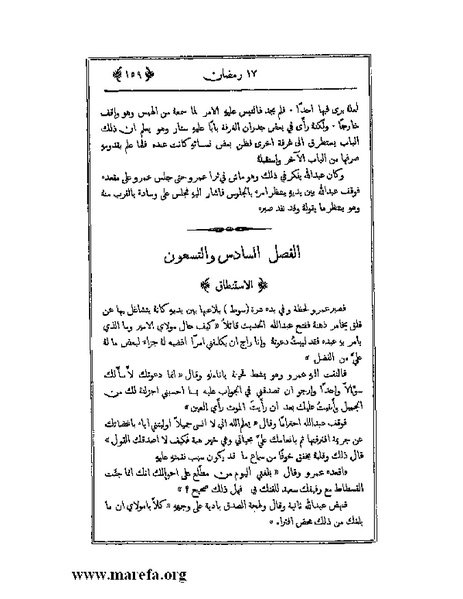 ١٧ رمضان ﴿ ١٥٩ ﴾
لعلهُ يرى فيها احدًا . فلم يجد فالتبس عليهِ الامر لما سمعهُ من الهمس وهو واقف
خارجًا . ولكنهُ رأى في بعض جدران الغرفة بابًا عليهِ ستار وهو يعلم ان ذلك
الباب يستطرق الى غرفة اخرى فظن بعض نسائهِ كانت عنده فلما علم بقدومهِ
صرفها من الباب الآخر واستقبلهُ
وكان عبدالله يفكر في ذلك وهو ماش في اثر عمرو حتى جلس عمرو على مقعده
فوقف عبدالله بين يديهِ ينتظر امره بالجلوس فاشار اليهِ فجلس على وسادة بالقرب منهُ
وهو ينتظر ما يقولهُ وقد نفد صبره
الفصل السادس والتسعون
﴿ الاستنطاق ﴾
فصبر عمرو لحظة وفي يده درة ( سوط ) يلاعبها بين يديهِ كانهُ يتشاغل بها عن
قلق يخامر ذهنهُ ففتح عبدالله الحديث قائلًا « كيف حال مولاي الامير وما الذي
يامر بهِ عبده فقد لبيت دعوتهُ وانا راجٍ ان يكلفني امرًا اقضيهِ لهُ جزاء لبعض ما لهُ
عليَّ من الفضل »
فالتفت اليهِ عمرو وهو يمشط لحيتهُ باناملهِ وقال « انما دعوتك لأسألك
سؤالًا واحدًا وارجو ان تصدقني في الجواب عليهِ بما احسبني اجزلتهُ لك من
الجميل وأبقيتُ عليك بعد ان رأيتَ الموت رأي العين »
فوقف عبدالله احترامًا وقال « يعلم الله اني لا انسى جميلًا اوليتني اياه باغضائك
عن جريمة اقترفتها ثم بانعامك عليَّ بحياتي وهي خير هبة فكيف لا اصدقك القول »
قال ذلك وقلبهُ يخفق خوفًا من سماع ما قد يكون سبب نقمتهِ عليهِ
فاقعده عمرو وقال « بلغني اليوم من مطّلع على احوالك انك انما جئت
الفسطاط مع رفيقك سعيد للفتك بي فهل ذلك صحيح ؟ »
فنهض عبدالله ثانية وقال ولهجة الصدق بادية على وجههِ « كلا يا مولاي ان ما
بلغك من ذلك محض افتراء »
www.marefa.org